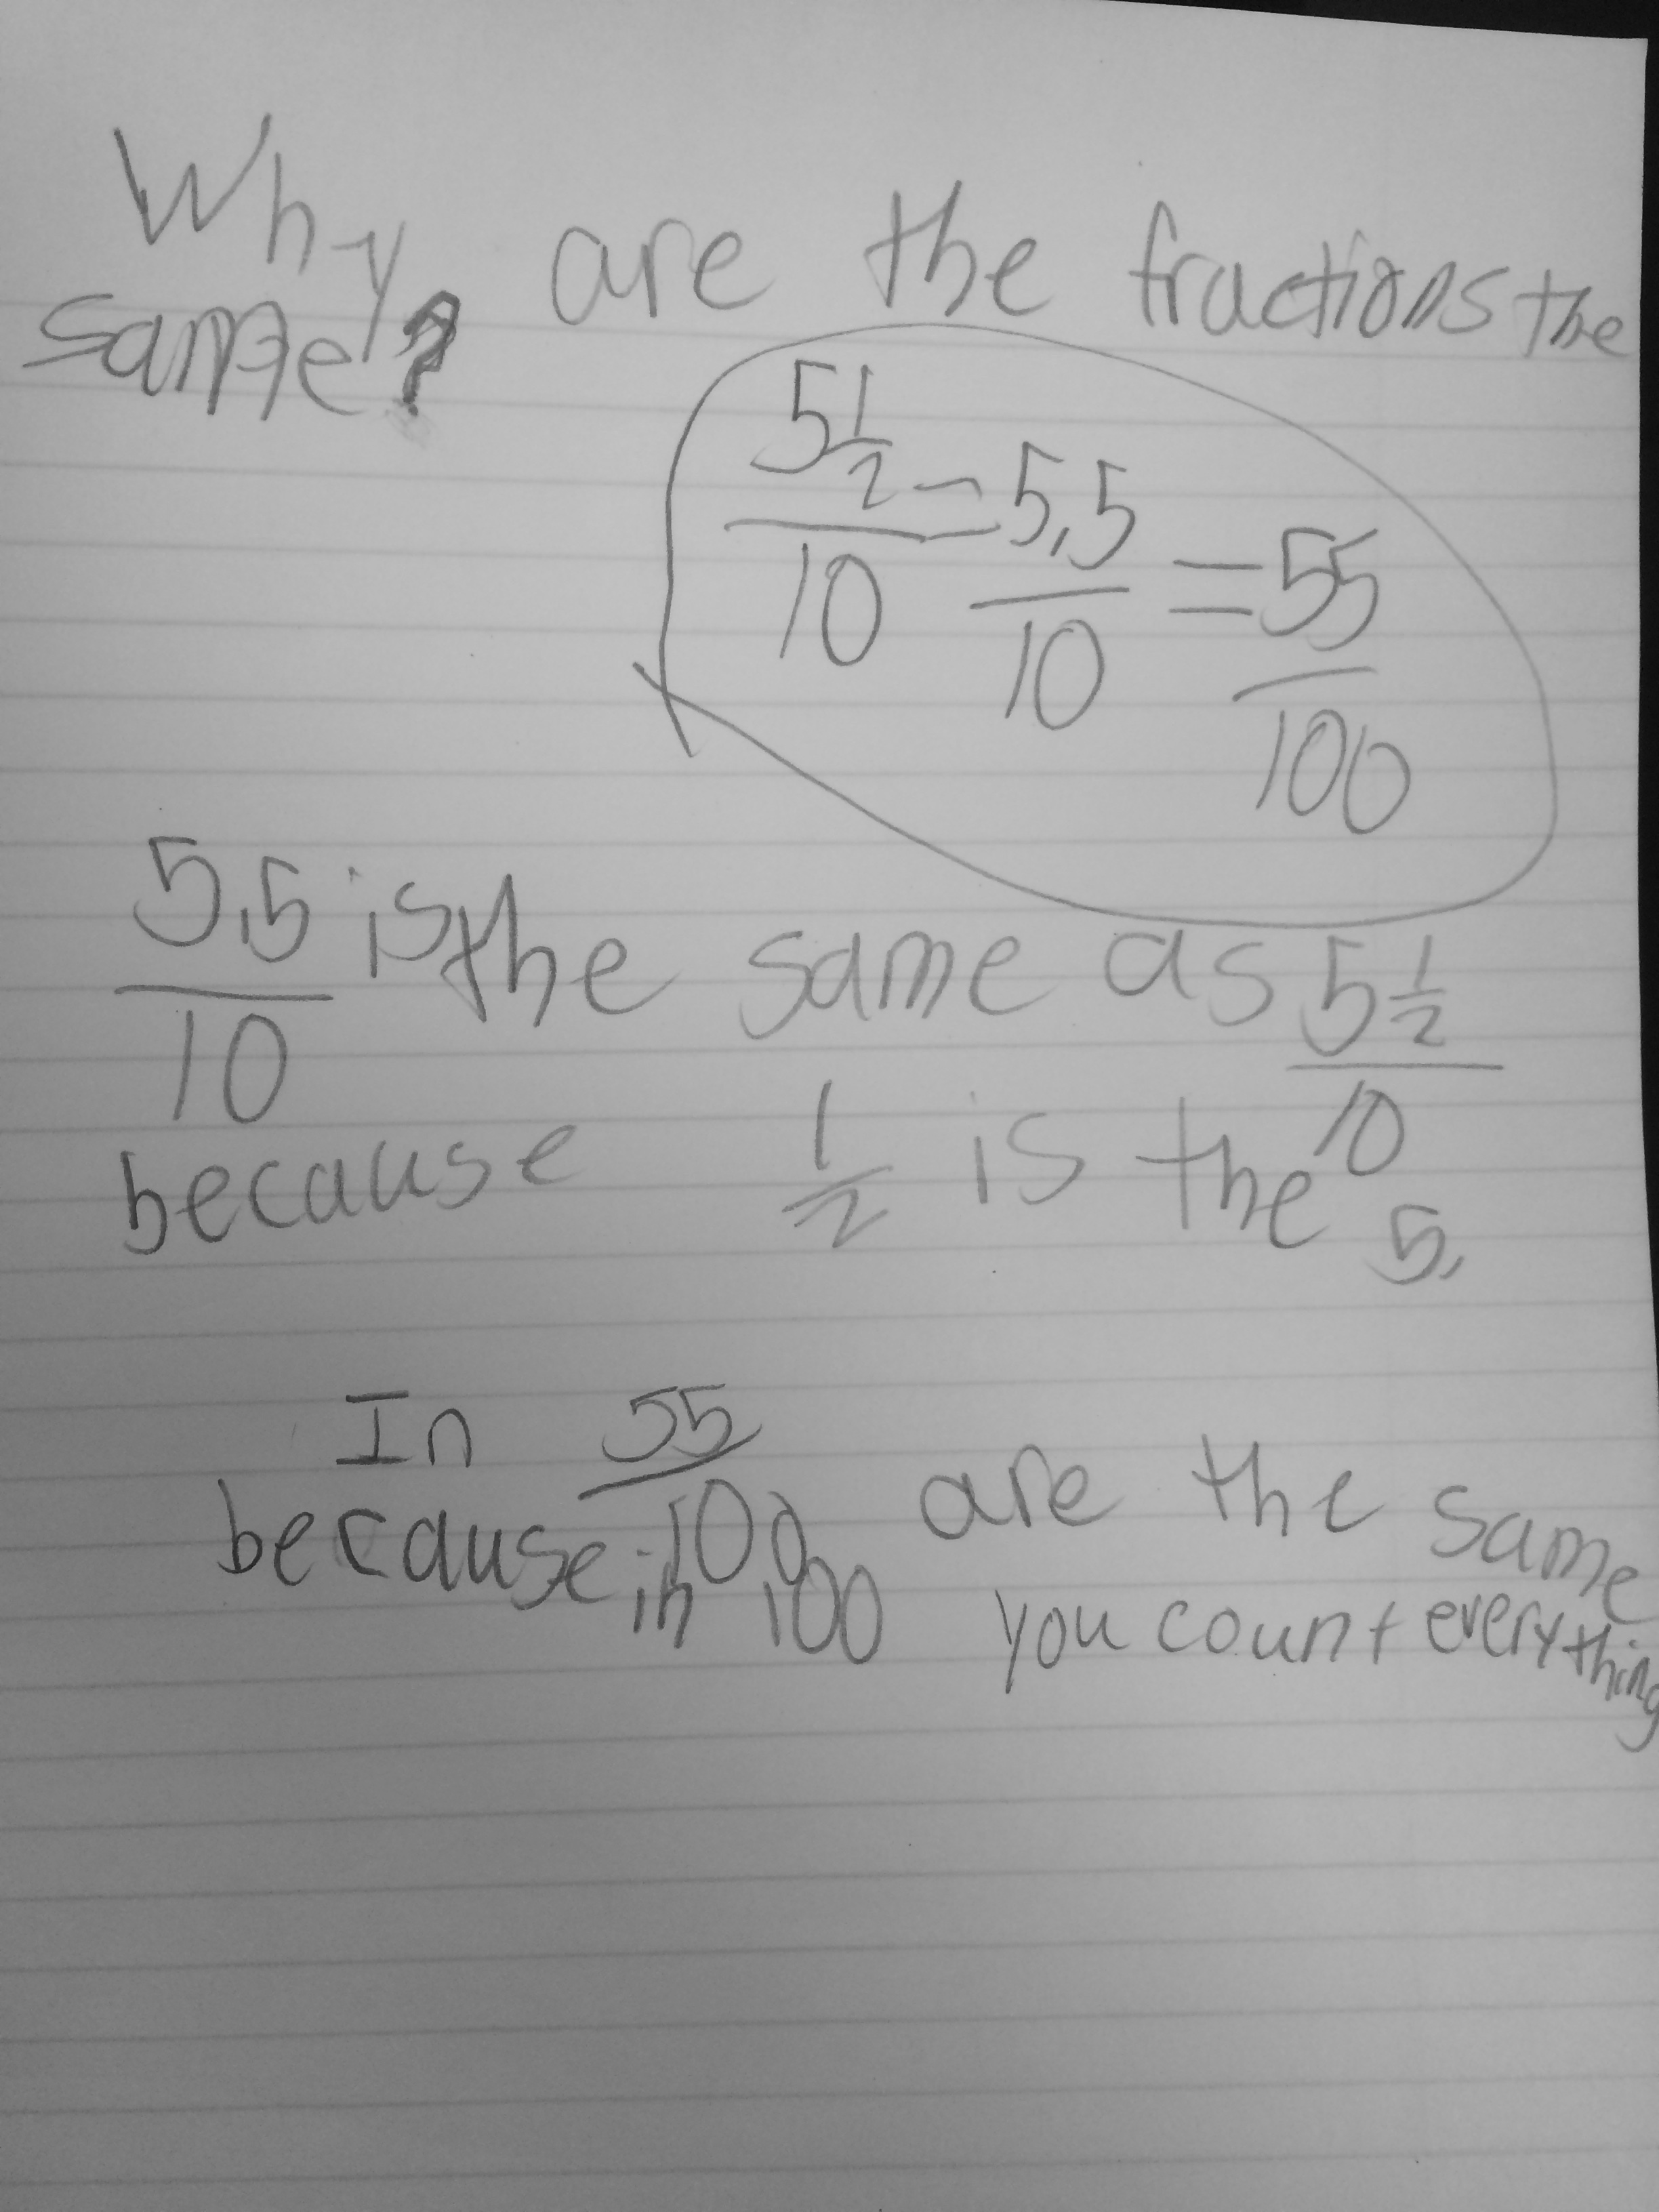 Why are the fractions the
same?
5 1/2 / 10 = 5.5 / 10 = 55 / 100
5.5 / 10 is the same as 5 1/2 / 10
because 1/2 is the 5.
In 55 / 100 are the same
because in 100 you count everything